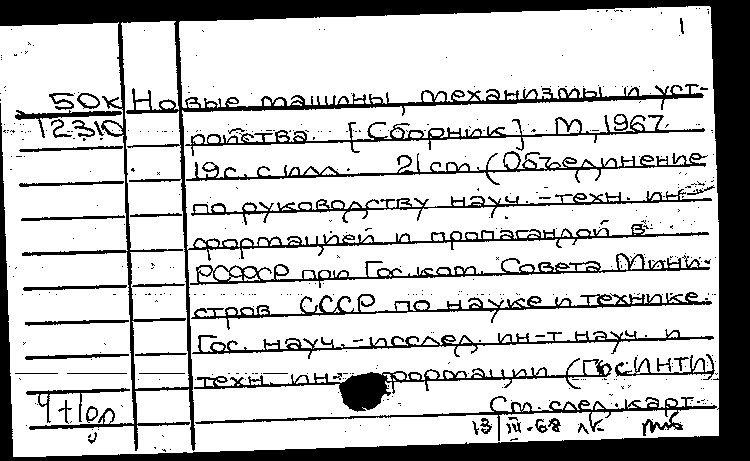 1
50к Новые машины, механизмы и уст-
12310 ройства. [Сборник]. М., 1967.
19с. с илл. 21 ст. (Объединение
по руководству науч.-техн. ин-
формацией и пропагандой в
РСФСР при Гос. ком. Совета Мини-
стров СССР по науке и технике.
Гос. науч.-исслед. ин-т науч. и
техн. информации (ГосИНТИ)
См. след. карт.
13 III-68